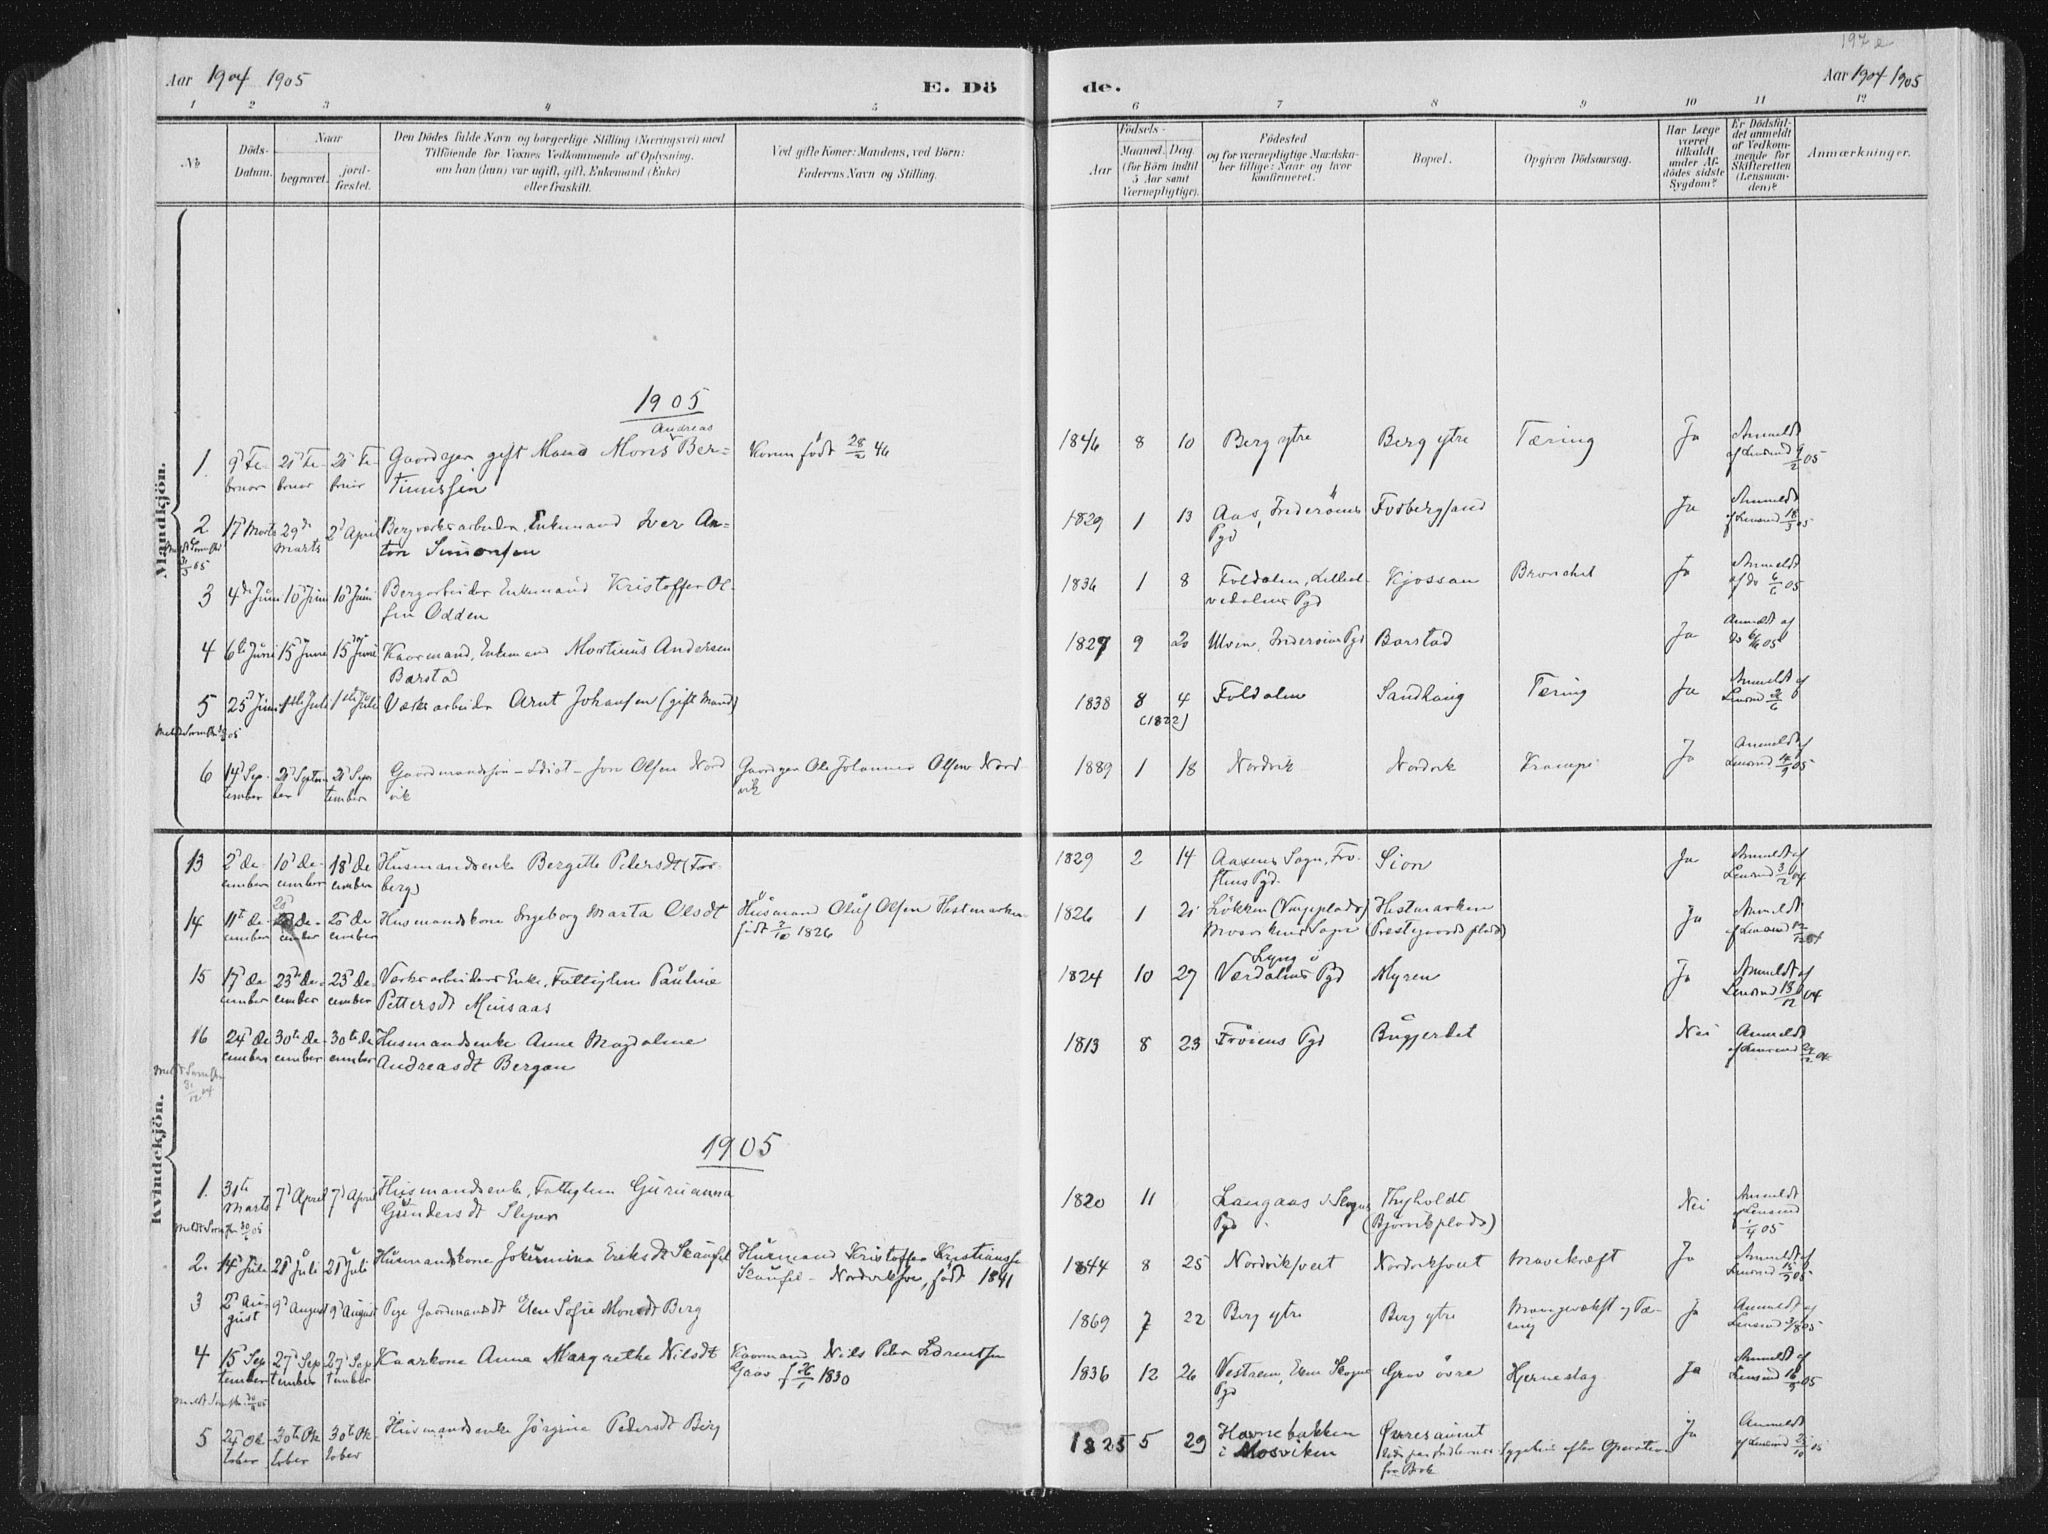 197a
Aar 1904 1905
E. Dö
de.
Aar 1904 1905
1 2 3 4 5 6 7 8 9 10 11 12
No
Döds-Datum.
Naar
begravet. jordfæstet.
Den Dödes fulde Navn og borgerlige Stilling (Næringsvei) med
Tilföiende for Voxnes Vedkommende af Oplysning,
om han (hun) var ugift, gift, Enkemand (Enke)
eller fraskilt.
Ved gifte Koner: Mandens, ved Börn:
Faderens Navn og Stilling.
Födsels-
Aar
Maaned. Dag.
(for Börn indtil
5 Aar samt
Værnepligtige).
Födested
og for værnepligtige Mandskaber tillige: Naar og hvor
konfirmeret.
Bopæl.
Opgiven Dödsaarsag.
Har Læge
været
tilkaldt
under Afdödes sidste
Sygdom?
Er Dödsfaldet anmeldt
af Vedkommende for
Skifteretten
(Lensmanden)?
Anmærkninger.
Mandkjön.
1905
Andreas
1. 9d Februar 21d Februar 21d Februar Gaardejer gift Mand Mons Ber=
tinussen
Konen født 28/2 46
1846 8 10 Berg ytre Berg ytre Tæring Ja Anmeldt
af Lensmd 9/2 05
2 17d Marts 29de Marts 2d April Bergværksarbeider, Enkemand Iver An=
ton Simonsen
1829 1 13 Aas, Inderøens
Pgd
Fosbergsand Ja Anmeldt
af Lensmd 18/3 05
3 4de Juni 10d Juni 10d Juni Bergarbeider Enkemand Kristoffer Ol-
sen Odden
1836 1 8 Foldalen, Lilleel-
vedalens Pgd
Kjossan Bronchit Ja Anmeldt
af do 6/6 05
4 6te Juni 15d Juni 15de Juni Kaarmand, Enkemand Martinus Andersen
Barstad
1827 9 20 Ulven, Inderøens Pgd Barstad Ja Anmeldt af
do 6/6 05
5 25d Juni 1ste Juli 1ste Juli Værksarbeider Arnt Johansen (gift Mand)
1838 8 4 Foldalen Sandhaug Tæring Ja Anmeldt af
(1822)
6 14d September 21d September 21d September Gaardmandssøn - Idiot - Jon Olsen Nord
vik
Gaardejer Ole Johannes Olsen Nord
vik
1889 1 18 Nordvik Nordvik Krampe Ja Anmeldt af
Lensmd 14/9 05
Kvindekjön.
13 2d December 10d December 18d December Husmandsenke Bergitte Petersdt (Fos-
berg)
1829 2 14 Aasens Sogn, Fro-
stens Pgd.
Sion Ja Anmeldt af
Lensmd 3/12 04
14 11te December 20d December 20d December Husmandskone Ingeborg Marta Olsdt
Husmand Oluf Olsen Hestmarken
født 2/10 1826
1826 1 21 Løkken
Mosvikens Sogn
Hestmarken
(Præstegaards plads)
Ja Anmeldt
af Lensmd 12/12 04
15 17d December 23de December 23de December Værksarbeiders Enke, Fattiglem Pauline
Pettersdt Musaas
1824 10 27 Lyng i
Værdalens Pgd
Myren Ja Anmeldt af
Lensmd 18/12 04
16 24d December 30te December 30te December Husmandsenke Anne Magdalene
Andreasdt Bergan
1813 8 23 Frøiens Pgd Bugjerdet Nei Anmeldt
af Lensmd 27/12 04
1905
1. 31te Marts 7d April 7d April Husmandsenke, Fattiglem Gurianna
Gundersdt Sleper
1820 11 Langaas i Skogns
Pgd
Thyholdt
(Bjørvikplads)
Nei Anmeldt
af Lensmd
1/4 05
2. 14d Juli 21d Juli 21d Juli Husmandskone Jokumina Eriksdt Skaufel
Husmand Kristoffer Kristiansen
Skaufel - Nordviksve, født 1841
1844 8 25 Nordviksveet Nordviksveet Mavekræft Ja Anmeldt af
Lensmd 15/7 05
3 2d August 9d August 9d August Pige Gaardmandsdt Elen Sofie Monsdt Berg
1869 7 22 Berg ytre Berg ytre Mangevækst og Tæ-
ring
Ja Anmeldt af
Lensmd 3/8 05
4 15d September 27d September 27d September Kaarkone Anna Margrethe Nilsdt
Kaarmand Nils Peter Lorentsen
Grav f 26/1 1830
1836 12 26 Vestrem, Skogns
Pgd
Grav øvre Hjerneslag Ja Anmeldt
Lensmd 16/9 05
5 24d Oktober 30te Oktober 30te Oktober Husmandsenke Jørgine Pedersdt Berg
1825 5 29 Havnebakken
i Mosviken
Øvresaunet
døde paa Indherreds Sygehus efter Operation
for Brok
Ja Anmeldt
af Lensmd 25/10 05